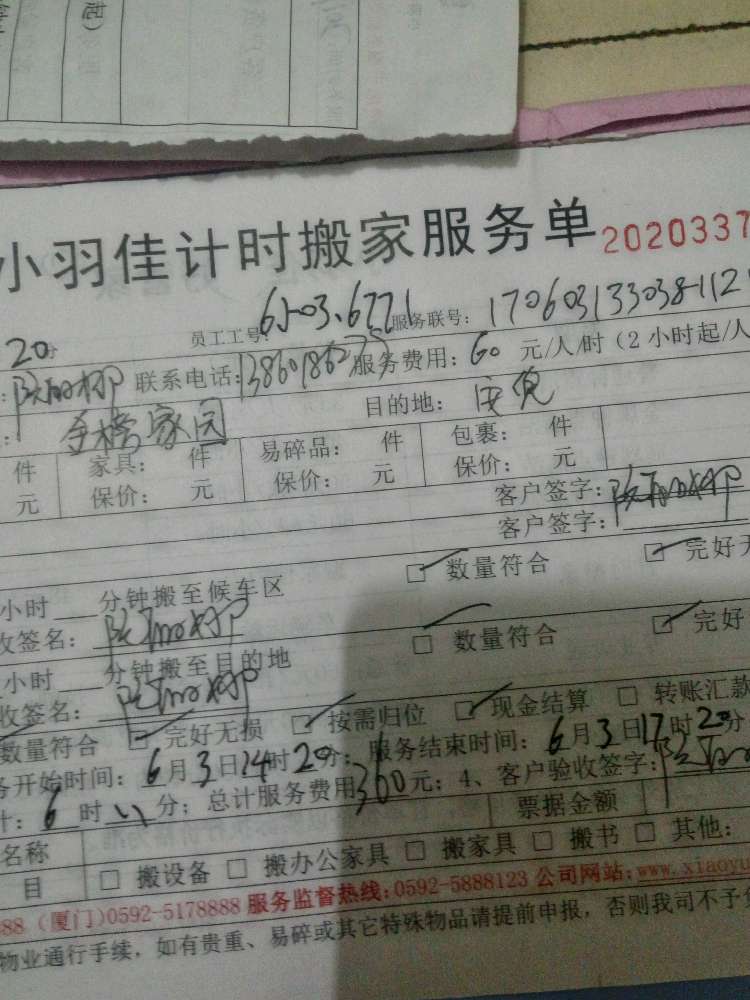 小羽佳计时搬家服务单 2020337
20分 员工工号: 服务联号: 170603133038-112
联系电话: 服务费用: 60 元/人/时 (2 小时起/人
金榜家园 目的地: 
件 家具: 件 易碎品: 件 包裹: 件
元 保价: 元 保价: 元 保价: 元
客户签字:
客户签字:
小时 分钟搬至候车区 □ 数量符合 □ 完好无
收签名:
小时 分钟搬至目的地 □ 数量符合 □ 完好
收签名:
数量符合 □ 完好无损 □ 按需归位 □ 现金结算 □ 转账汇款
务开始时间: 6月3日14时20分; 服务结束时间: 6月3日17时20分
计: 6 时 分; 总计服务费用 360 元; 4、客户验收签字:
名称 票据金额
目 □ 搬设备 □ 搬办公家具 □ 搬家具 □ 搬书 □ 其他:
888 (厦门)0592-5178888 服务监督热线:0592-5888123 公司网站:www.xiaoyu
物业通行手续, 如有贵重、易碎或其它特殊物品请提前申报, 否则我司不予